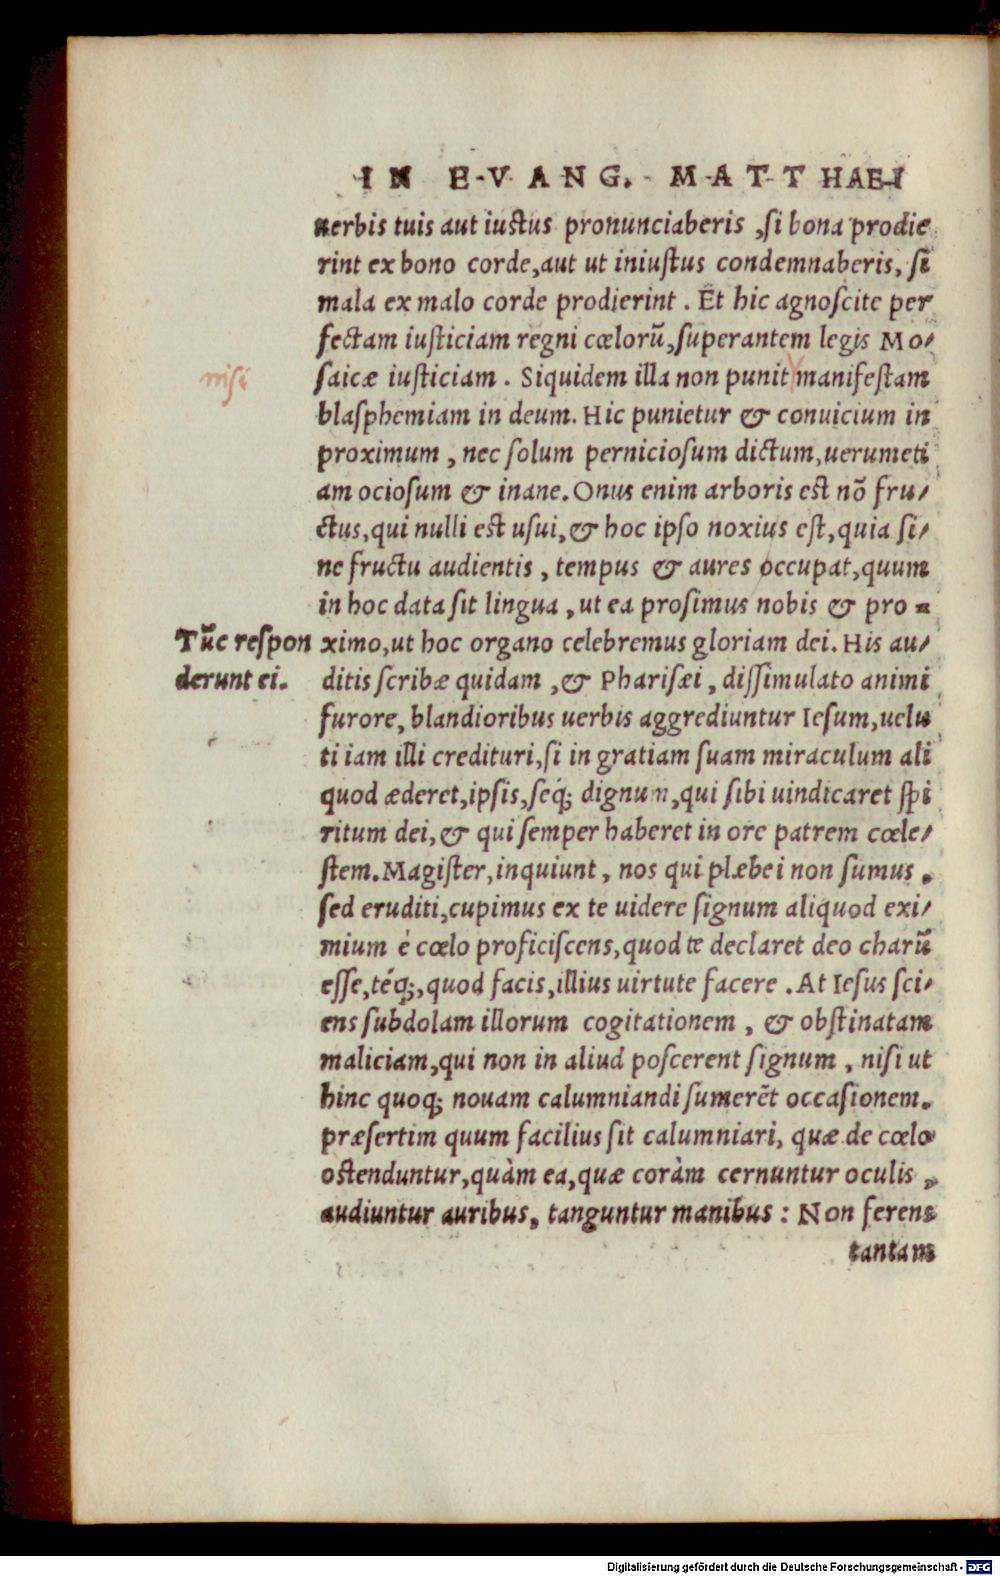 IN EVANG. MATTHAEI
uerbis tuis aut iustus pronunciaberis, si bona prodie
rint ex bono corde, aut ut iniustus condemnaberis, si
mala ex malo corde prodierint. Et hic agnoscite per
fectam iusticiam regni cœlorũ, superantem legis Mo-
nisi
saicæ iusticiam. Siquidem illa non punit manifestam
blasphemiam in deum. Hic punietur & conuicium in
proximum, nec solum perniciosum dictum, uerumeti
am ociosum & inane. Onus enim arboris est nõ fru-
ctus, qui nulli est usui, & hoc ipso noxius est, quia si-
ne fructu audientis, tempus & aures occupat, quum
in hoc data sit lingua, ut ea prosimus nobis & pro-
Tũc respon
ximo, ut hoc organo celebremus gloriam dei. His au-
derunt ei.
ditis scribæ quidam, & Pharisæi, dissimulato animi
furore, blandioribus uerbis aggrediuntur Iesum, uelu
ti iam illi credituri, si in gratiam suam miraculum ali
quod æderet, ipsis, seq́; dignum, qui sibi uindicaret spi
ritum dei, & qui semper haberet in ore patrem cœle-
stem. Magister, inquiunt, nos qui plæbei non sumus,
sed eruditi, cupimus ex te uidere signum aliquod exi-
mium è cœlo proficiscens, quod te declaret deo charũ
esse, téq;, quod facis, illius uirtute facere. At Iesus sci-
ens subdolam illorum cogitationem, & obstinatam
maliciam, qui non in aliud poscerent signum, nisi ut
hinc quoq; nouam calumniandi sumerẽt occasionem.
præsertim quum facilius sit calumniari, quæ de cœlo
ostenduntur, quàm ea, quæ coràm cernuntur oculis,
audiuntur auribus, tanguntur manibus: Non ferens
tantam
Digitalisierung gefördert durch die Deutsche Forschungsgemeinschaft - DFG